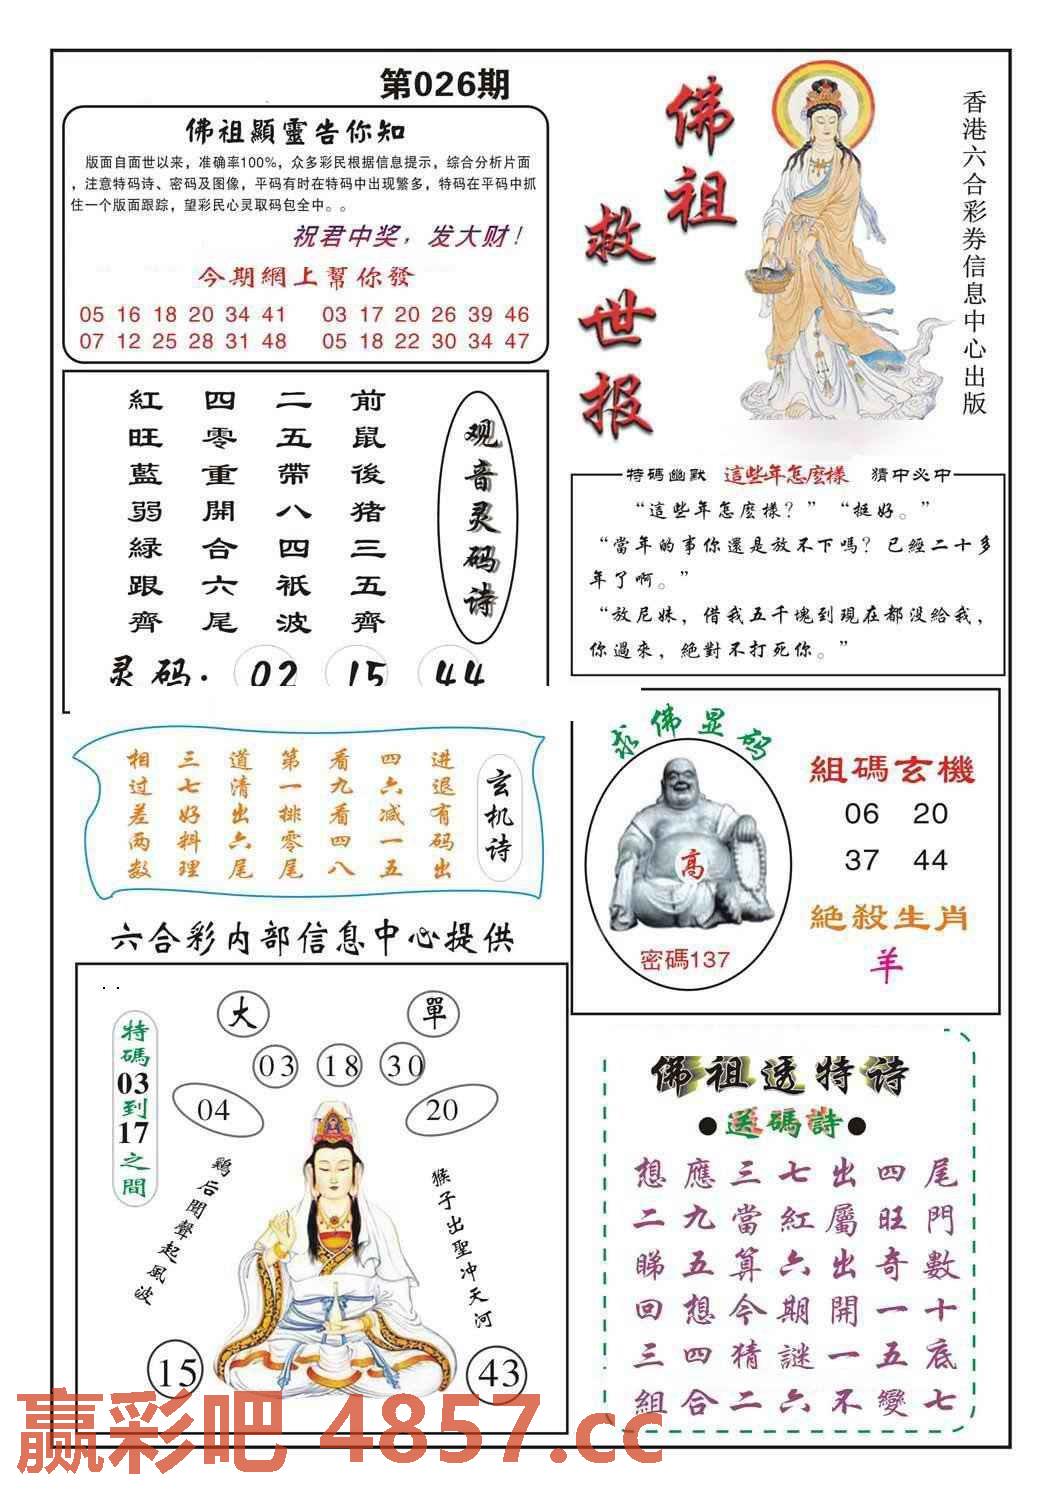 第026期
佛祖顯靈告你知
版面自面世以来，准确率100%，众多彩民根据信息提示，综合分析片面
，注意特码诗、密码及图像，平码有时在特码中出现繁多，特码在平码中抓
住一个版面跟踪，望彩民心灵取码包全中。。
祝君中奖，发大财！
今期網上幫你發
05 16 18 20 34 41 03 17 20 26 39 46
07 12 25 28 31 48 05 18 22 30 34 47
佛祖
救世报
香港六合彩券信息中心出版
观音灵码诗
前鼠後猪三五齊
二五帶八四祇波
四零重開合六尾
紅旺藍弱緑跟齊
灵码：02 15 44
特码幽默 這些年怎麽樣 猜中必中
“這些年怎麽樣？”“挺好。”
“當年的事你還是放不下嗎？已經二十多
年了啊。”
“放尼妹，借我五千塊到現在都没給我，
你過來，絶對不打死你。”
玄机诗
进退有码出
四六减一五
看九看四八
第一排零尾
道清出六尾
三七好料理
相过差两数
求佛显码
高
密碼137
組碼玄機
06 20
37 44
絶殺生肖
羊
六合彩内部信息中心提供
特碼03到17之間
大
單
03 18 30
04
20
鷄后聞聲起風波
猴子出聖冲天河
15
43
佛祖透特诗
●送碼詩●
想應三七出四尾
二九當紅屬旺門
睇五算六出奇數
回想今期開一十
三四猜謎一五底
組合二六不變七
赢彩吧 4857.cc